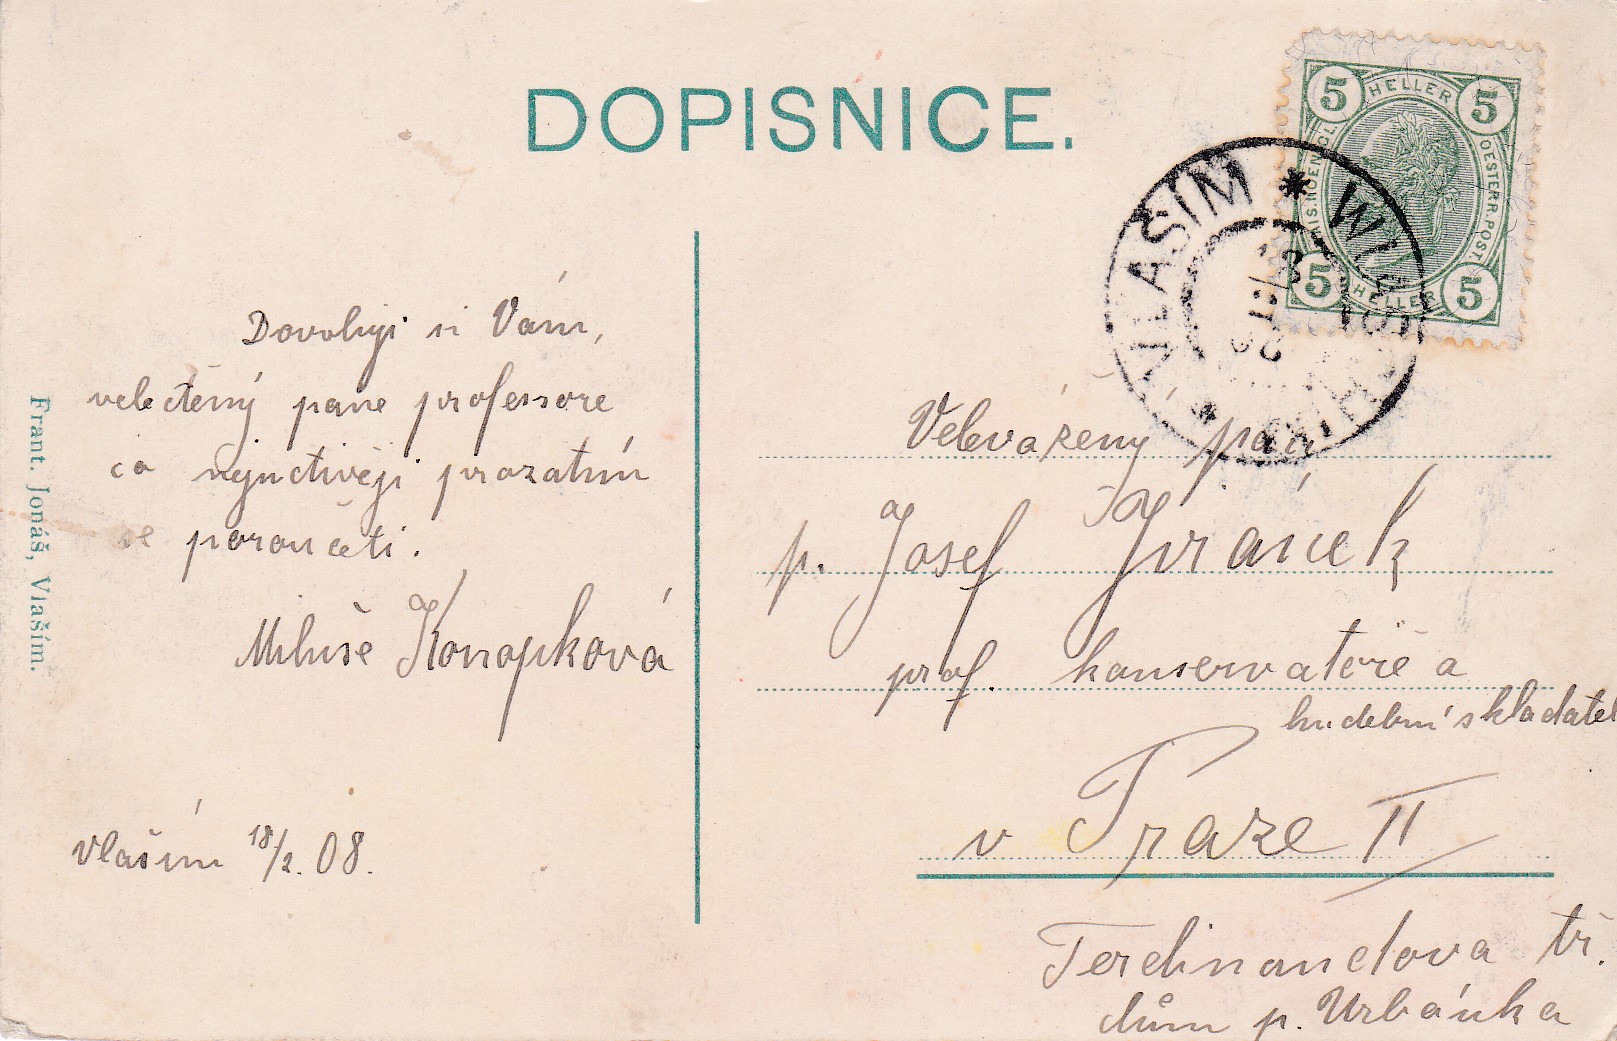 DOPISNICE.
5 HELLER 5
OESTERR. POST.
5 HELLER 5
VLAŠIM * 
Dovoluji si Vám,
velectěný pane professore
co nejuctivěji prozatím
se poroučeti.
Miluše Konopková
Vlaším 18/2. 08.
Frant. Jonáš, Vlaším.
Velevážený pan
p. Josef Jiránek
prof. konservatoře a
hudební skladatel
v Praze II
Ferdinandova tř.
dům p. Urbánka